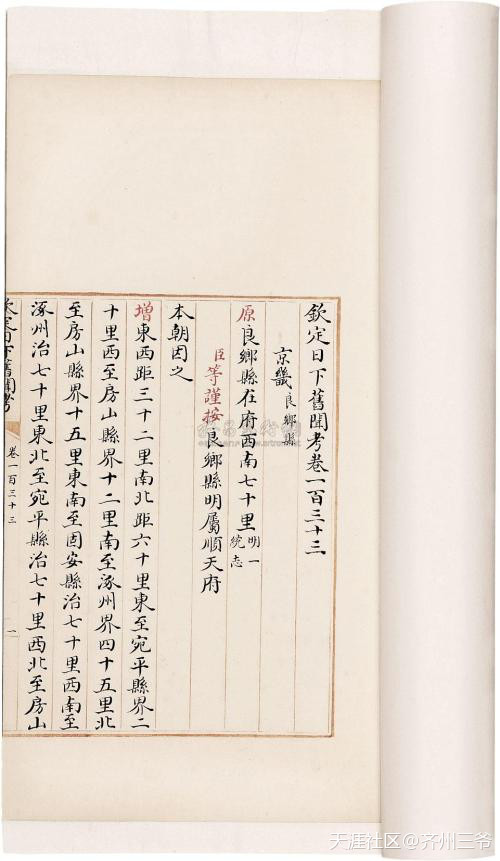 欽定日下舊聞考卷一百三十三
京畿良鄉縣
原良鄉縣在府西南七十里明一統志
臣等謹按良鄉縣明屬順天府
本朝因之
增東西距三十二里南北距六十里東至宛平縣界二
十里西至房山縣界十二里南至涿州界四十五里北
至房山縣界十五里東南至固安縣治七十里西南至
涿州治七十里東北至宛平縣治七十里西北至房山
欽定日下舊聞考
卷一百三十三
一
天涯社区@齐州三爷